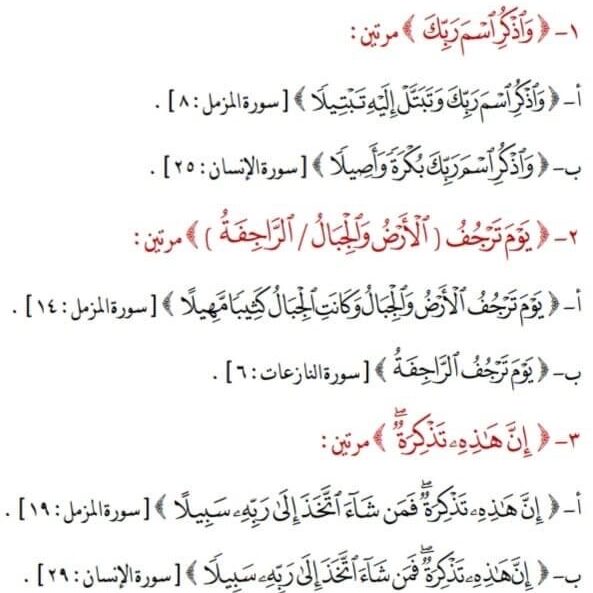 ١- ﴿ وَٱذْكُرِ ٱسْمَ رَبِّكَ ﴾ مرتين :
أ- ﴿ وَٱذْكُرِ ٱسْمَ رَبِّكَ وَتَبَتَّلْ إِلَيْهِ تَبْتِيلًا ﴾ [ سورة المزمل : ٨ ] .
ب- ﴿ وَٱذْكُرِ ٱسْمَ رَبِّكَ بُكْرَةً وَأَصِيلًا ﴾ [ سورة الإنسان : ٢٥ ] .
٢- ﴿ يَوْمَ تَرْجُفُ ( ٱلْأَرْضُ وَٱلْجِبَالُ / ٱلرَّاجِفَةُ ) ﴾ مرتين :
أ- ﴿ يَوْمَ تَرْجُفُ ٱلْأَرْضُ وَٱلْجِبَالُ وَكَانَتِ ٱلْجِبَالُ كَثِيبًا مَّهِيلًا ﴾ [ سورة المزمل : ١٤ ] .
ب- ﴿ يَوْمَ تَرْجُفُ ٱلرَّاجِفَةُ ﴾ [ سورة النازعات : ٦ ] .
٣- ﴿ إِنَّ هَـٰذِهِۦ تَذْكِرَةٌۖ ﴾ مرتين :
أ- ﴿ إِنَّ هَـٰذِهِۦ تَذْكِرَةٌۖ فَمَن شَآءَ ٱتَّخَذَ إِلَىٰ رَبِّهِۦ سَبِيلًا ﴾ [ سورة المزمل : ١٩ ] .
ب- ﴿ إِنَّ هَـٰذِهِۦ تَذْكِرَةٌۖ فَمَن شَآءَ ٱتَّخَذَ إِلَىٰ رَبِّهِۦ سَبِيلًا ﴾ [ سورة الإنسان : ٢٩ ] .